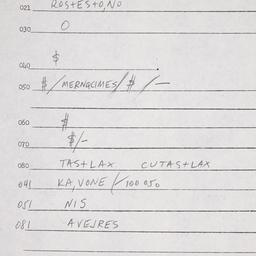 021 ROSTESTO,NO
030 O
040 $
050 $/MERNGCIMES/$/—
060 #
070 $/-
080 TASTLAX CUTASTLAX
041 KA,VONE/100 050
051 NIS
081 AVEJRES